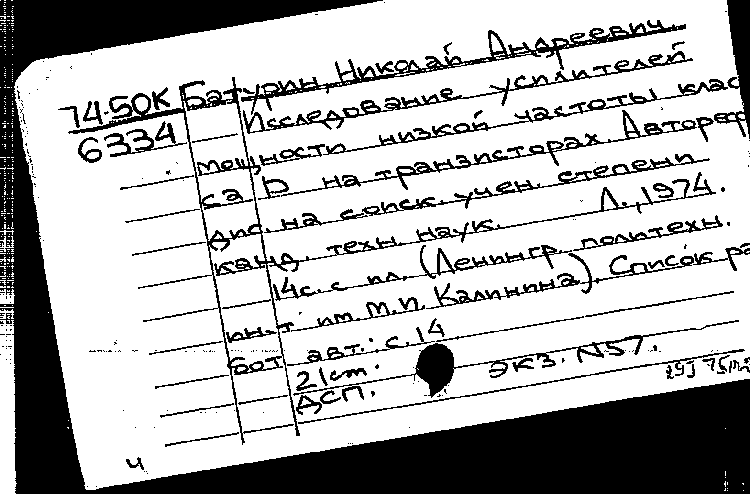 74-50К Батурин, Николай Андреевич.
6334 Исследование усилителей
мощности низкой частоты клас
са D на транзисторах. Автореф
дис. на соиск. учен. степени
канд. техн. наук. Л., 1974.
14с. с ил. (Ленингр. политехн.
ин-т им. М.И. Калинина). Список ра
бот авт.: с. 14
21cm.
ДСП. экз. N57.
ч